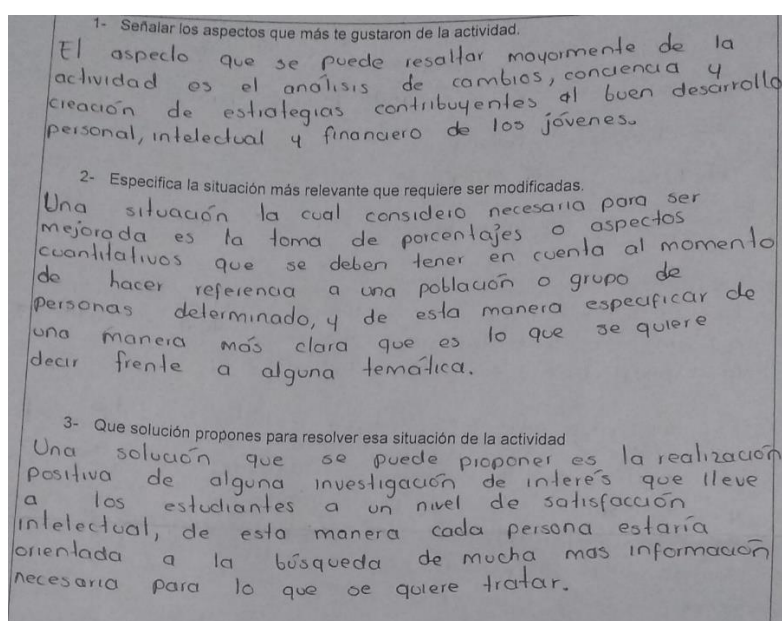 1- Señalar los aspectos que más te gustaron de la actividad.
El aspecto que se puede resaltar mayormente de la
actividad es el análisis de cambios, conciencia y
creación de estrategias contribuyentes al buen desarrollo
personal, intelectual y financiero de los jóvenes.
2- Especifica la situación más relevante que requiere ser modificadas.
Una situación la cual considero necesaria para ser
mejorada es la toma de porcentajes o aspectos
cuantitativos que se deben tener en cuenta al momento
de hacer referencia a una población o grupo de
personas determinado, y de esta manera especificar de
una manera más clara que es lo que se quiere
decir frente a alguna temática.
3- Que solución propones para resolver esa situación de la actividad
Una solución que se puede proponer es la realización
positiva de alguna investigación de interés que lleve
a los estudiantes a un nivel de satisfacción
intelectual, de esta manera cada persona estaría
orientada a la búsqueda de mucha mas información
necesaria para lo que se quiere tratar.